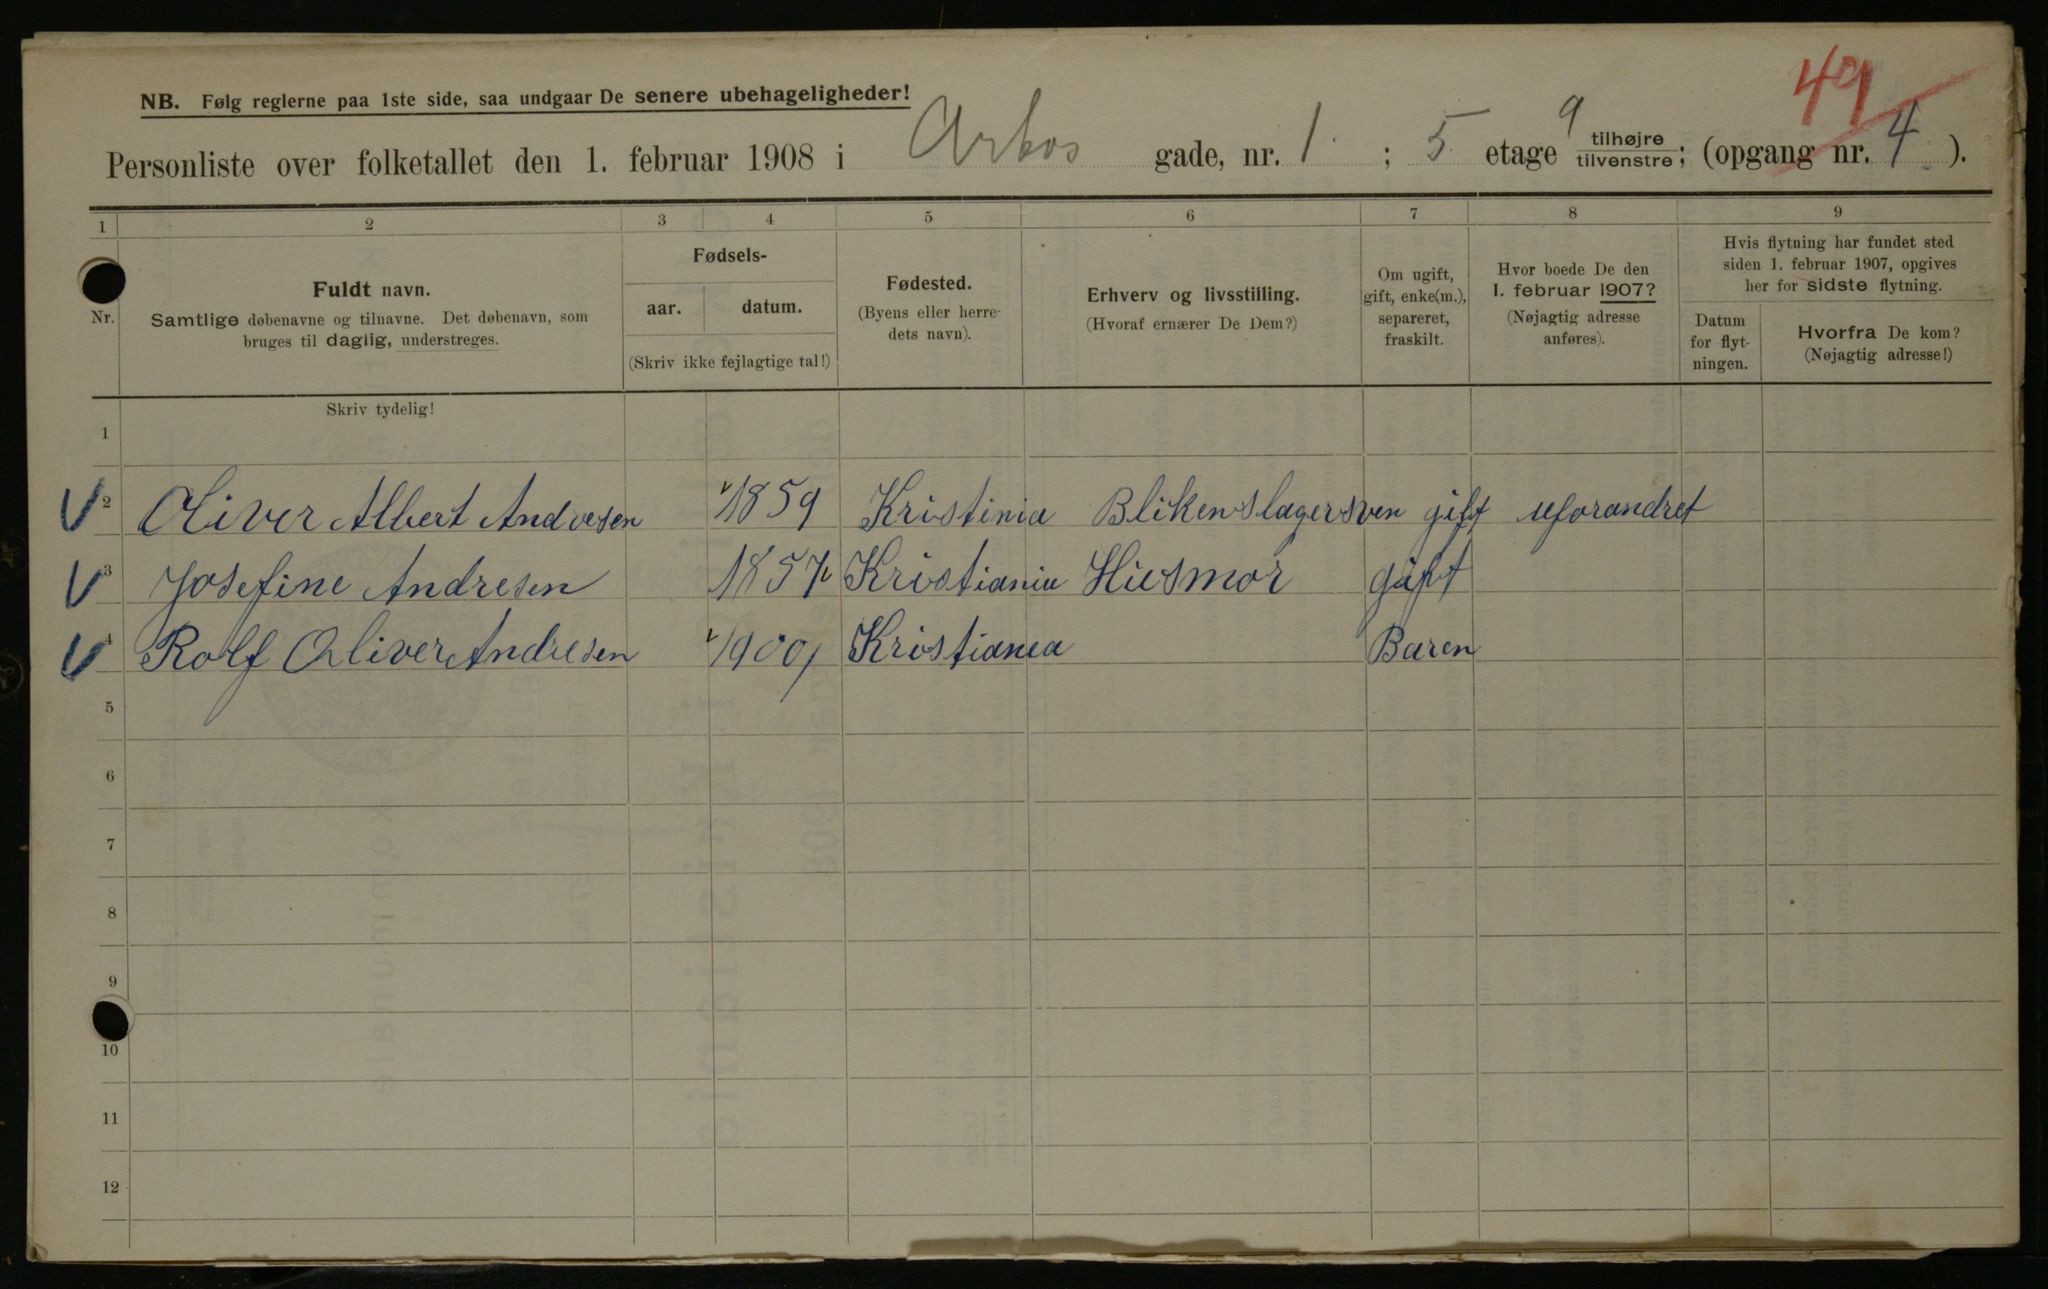 49
NB. Følg reglerne paa 1ste side, saa undgaar De senere ubehageligheder!
Personliste over folketallet den 1. februar 1908 i Arbos gade, nr. 1 ; 5 etage 9 tilhøjre tilvenstre; (opgang nr. 4 ).
1 2 3 4 5 6 7 8 9
Nr.
Fuldt navn.
Samtlige døbenavne og tilnavne. Det døbenavn, som
bruges til daglig, understreges.
Fødsels-
aar. datum.
(Skriv ikke fejlagtige tal!)
Fødested.
(Byens eller herre-
dets navn).
Erhverv og livsstilling.
(Hvoraf ernærer De Dem?)
Om ugift,
gift, enke(m.),
separeret,
fraskilt.
Hvor boede De den
1. februar 1907?
(Nøjagtig adresse
anføres).
Hvis flytning har fundet sted
siden 1. februar 1907, opgives
her for sidste flytning.
Datum
for flyt-
ningen.
Hvorfra De kom?
(Nøjagtig adresse!)
Skriv tydelig!
1
2 Oliver Albert Andresen 1859 Kristinia Blikenslagersven gift uforandret
3 Josefine Andresen 1857 Kristiania Husmor gift
4 Rolf Oliver Andresen 1900 Kristiania Baren
5
6
7
8
9
10
11
12